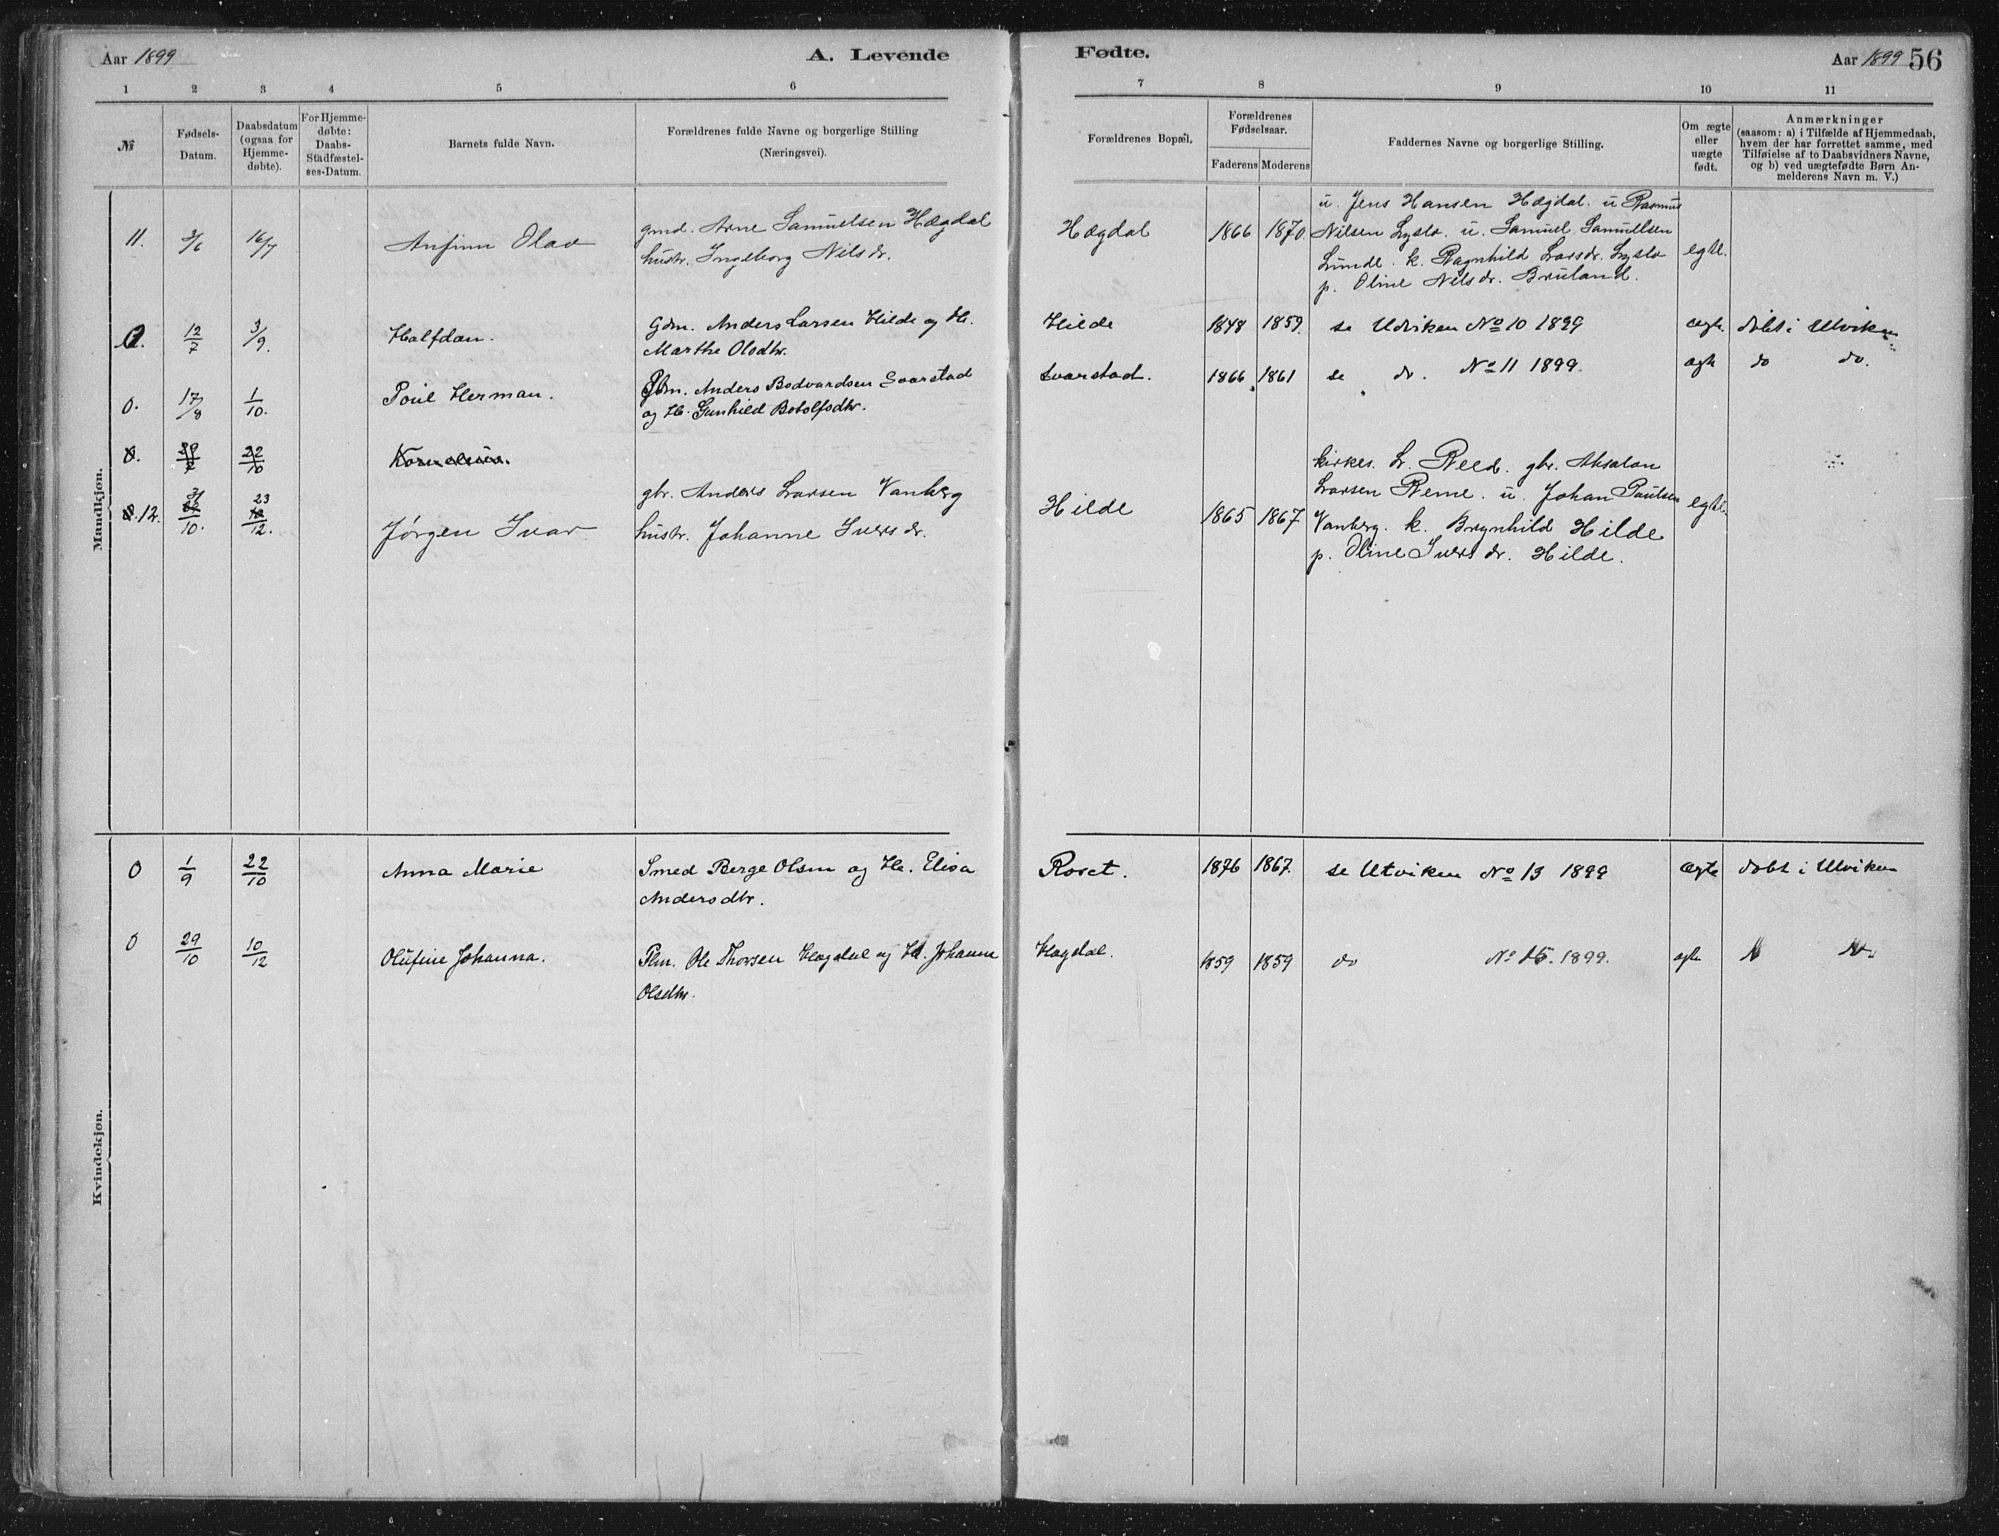 Aar 1899
A. Levende
Fødte.
Aar 1899 56
1 2 3 4 5 6 7 8 9 10 11
№
Fødsels-
Datum.
Daabsdatum
(ogsaa for
Hjemme-
døbte).
For Hjemme-
døbte:
Daabs-
Stadfæstel-
ses-Datum.
Barnets fulde Navn.
Forældrenes fulde Navne og borgerlige Stilling
(Næringsvei).
Forældrenes Bopæl.
Forældrenes
Fødselsaar.
Faderens Moderens
Faddernes Navne og borgerlige Stilling.
Om ægte
eller
uægte
født.
Anmærkninger
(saasom: a) i Tilfælde af Hjemmedaab,
hvem der har forrettet samme, med
Tilføielse af to Daabsvidners Navne,
og b) ved uægtefødte Børn An-
melderens Navn m. V.)
Mandkjøn.
11. 3/6 16/7 Anfinn Olav
gmd. Arne Samuelsen Hægdal
hustr. Ingeborg Nilsdr.
Hægdal 1866 1870
u. Jens Hansen Hægdal. u Rasmus
Nilsen Lyslo. u. Samuel Samuelsen
Lunde. k. Ragnhild Larsdr. Lyslo
p. Oline Nilsdr. Bruland.
egte.
0. 12/7 3/9 Halfdan.
Gdm. Anders Larsen Hilde og H.
Marthe Olsdtr.
Hilde 1848 1859. se Udviken No 10 1899 ægte. døbt i Utviken
0. 17/8 1/10. Poul Herman.
Pbm. Anders Bodvardsen Svarstad
og H. Gunhild Botolfsdtr.
Svarstad. 1866 1861 se do. No 11 1899. ægte do do.
0. 22/10 Kornelius.
12. 31/10. 23/12. Jørgen Ivar
gbr. Anders Larsen Vanberg
hustr. Johanne Iversdr.
Hilde 1865 1867
kirkes. L. Reed. gbr. Absalon
Larsen Reme. u. Johan Paulsen
Vanberg. k. Brynhild Hilde
p. Oline Iversdr. Hilde.
egte.
Kvindekjøn.
0 1/9 22/10 Anna Marie
Smed Berge Olsen og H. Elisa
Andersdtr.
Roset. 1876 1867. se Utviken No 13 1899 ægte døbt i Utviken
0 29/10 10/12 Olufine Johanna.
Plm. Ole Thorsen Hægdal og H. Johanna
Olsdtr.
Hægdal. 1859 1859 do No 15. 1899. ægte